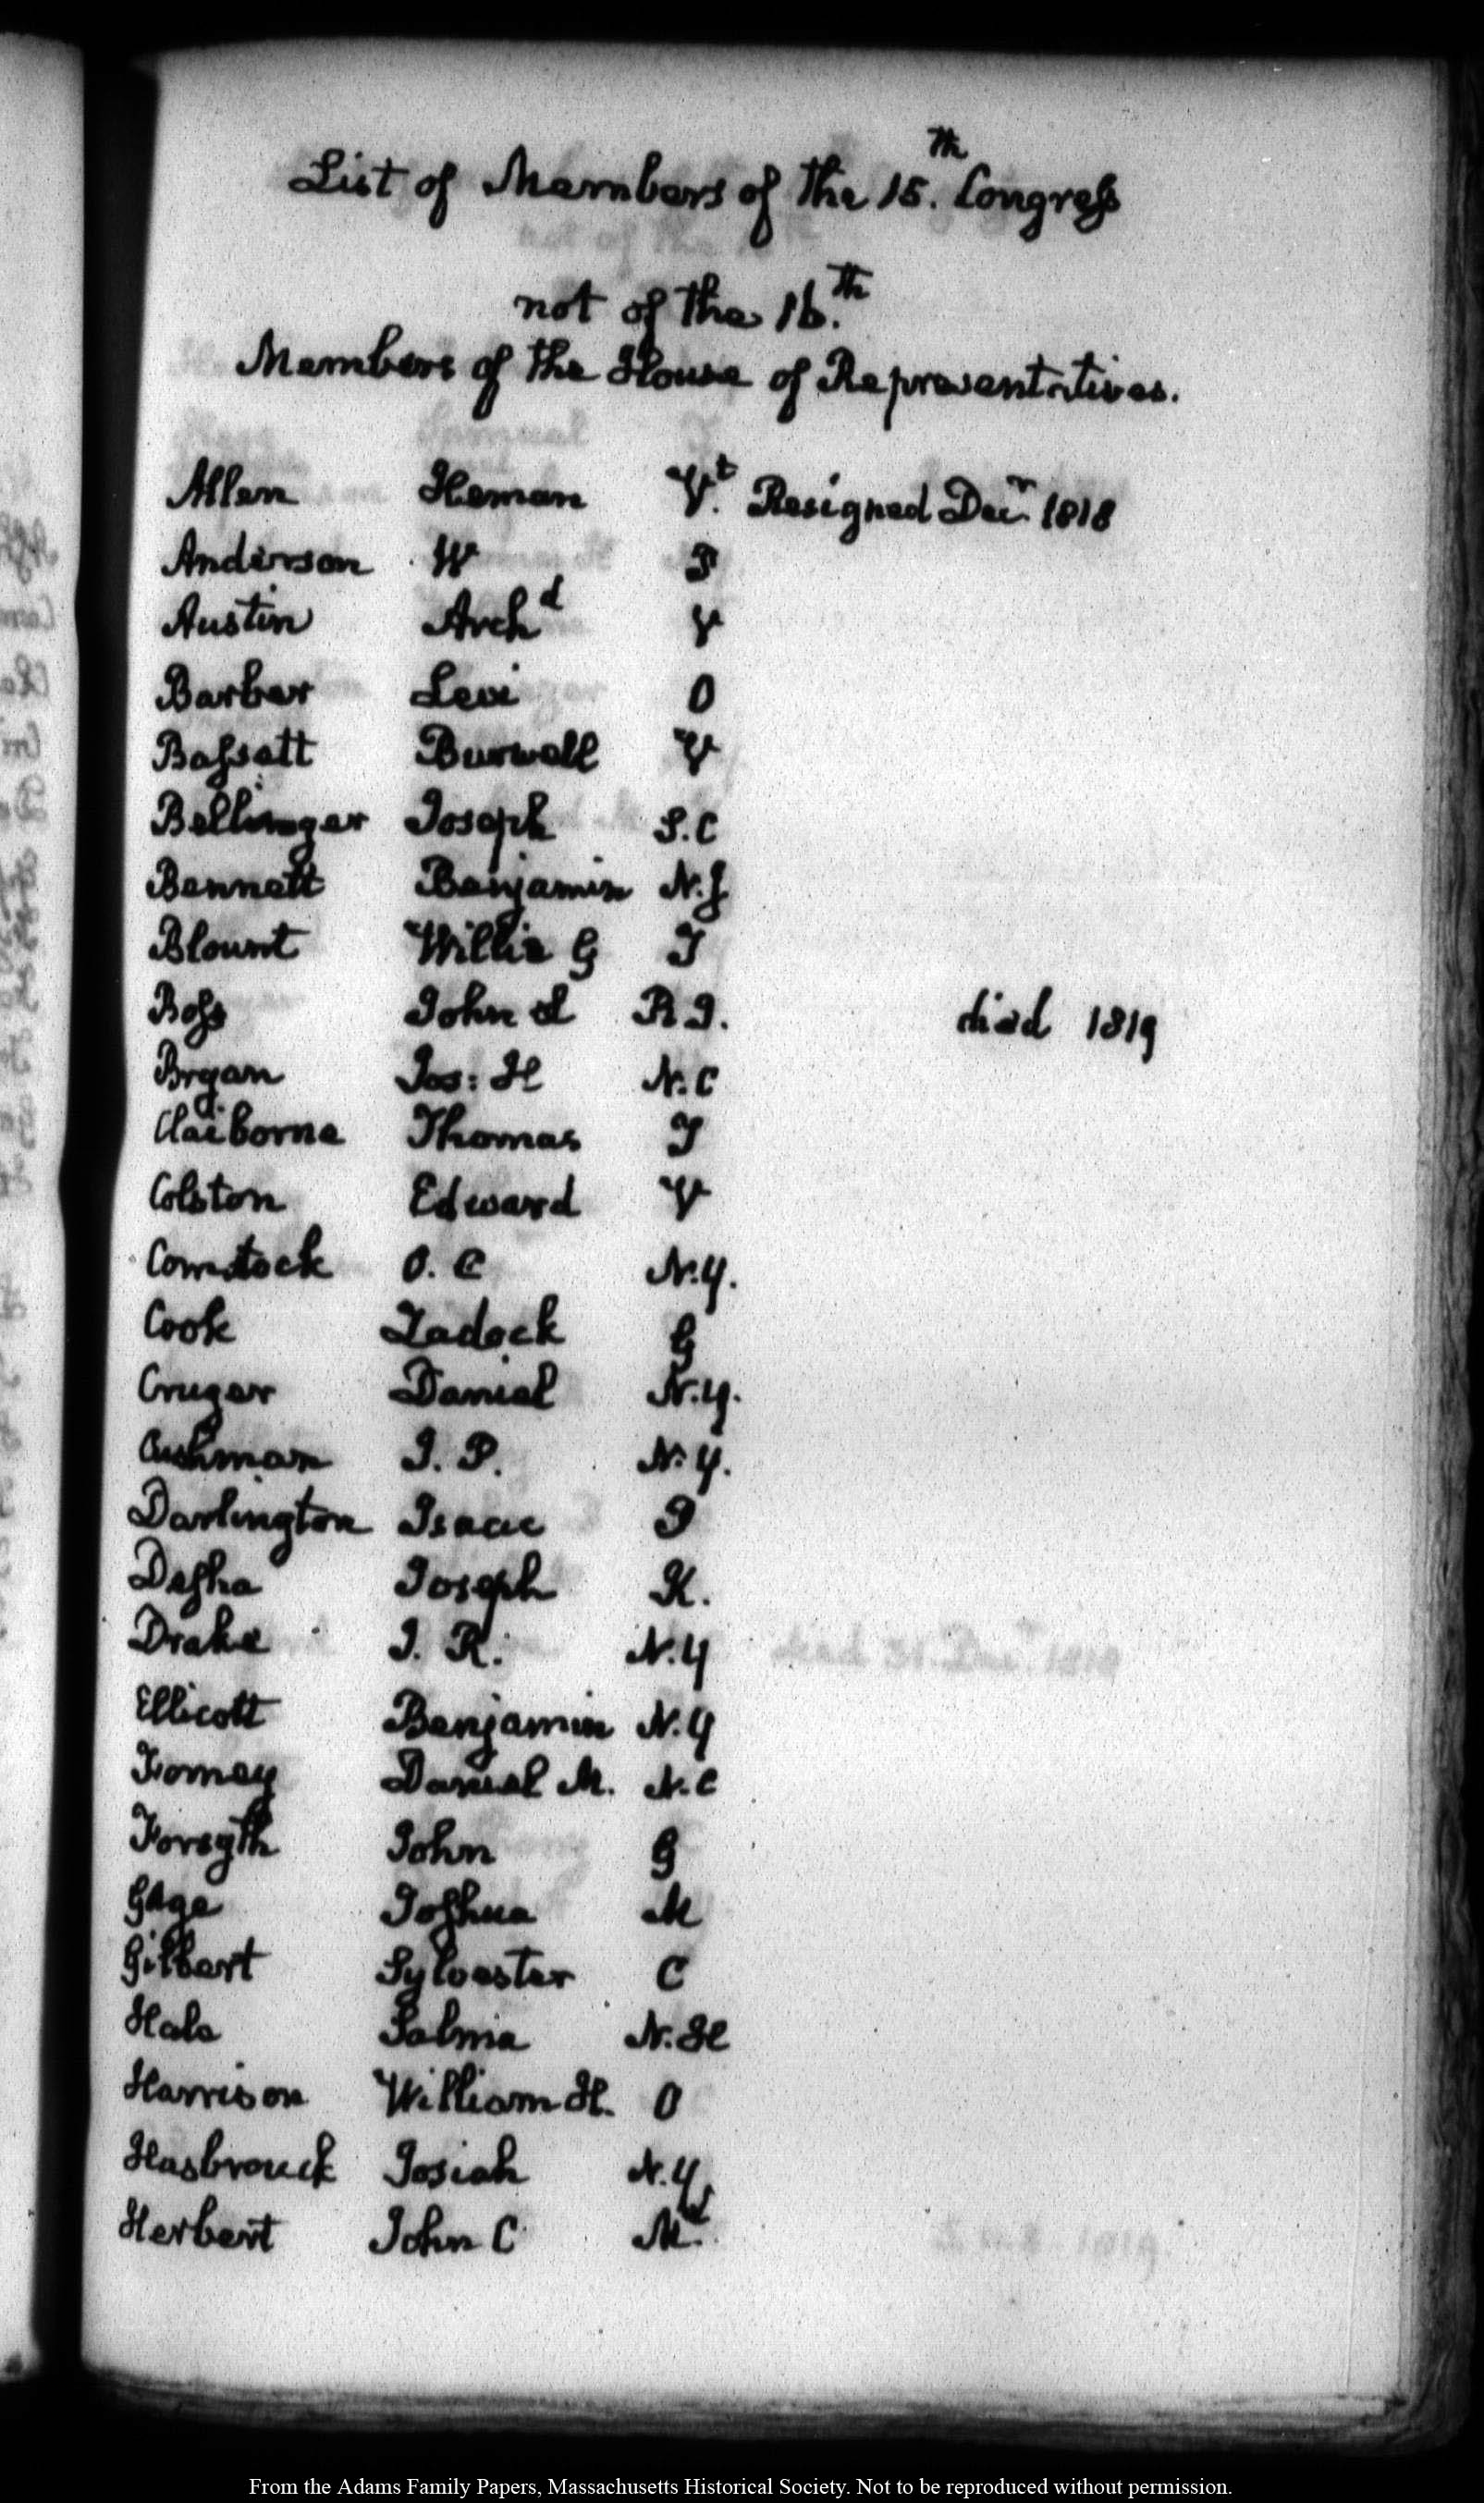 List of Members of the 15.th Congress
not of the 16.th
Members of the House of Representatives.
Allen Heman V.t Resigned Decr. 1818
Anderson W P
Austin Archd V
Barber Levi O
Bassett Burwell V
Bellinger Joseph S.C
Bennett Benjamin N.J
Blount Willie G T
Boss John L R I. died 1819
Bryan Jos: H N.C
Claiborne Thomas T
Colston Edward V
Comstock O. C N.Y.
Cook Zadock G
Cruger Daniel N.Y.
Cushman J. P. N.Y.
Darlington Isaac P
Desha Joseph K.
Drake J. R. N.Y
Ellicott Benjamin N.Y
Forney Daniel M. N.C
Forsyth John G
Gage Joshua M
Gilbert Sylvester C
Hale Salma N.H
Harrison William H. O
Hasbrouck Josiah N.Y.
Herbert John C M.d
From the Adams Family Papers, Massachusetts Historical Society. Not to be reproduced without permission.